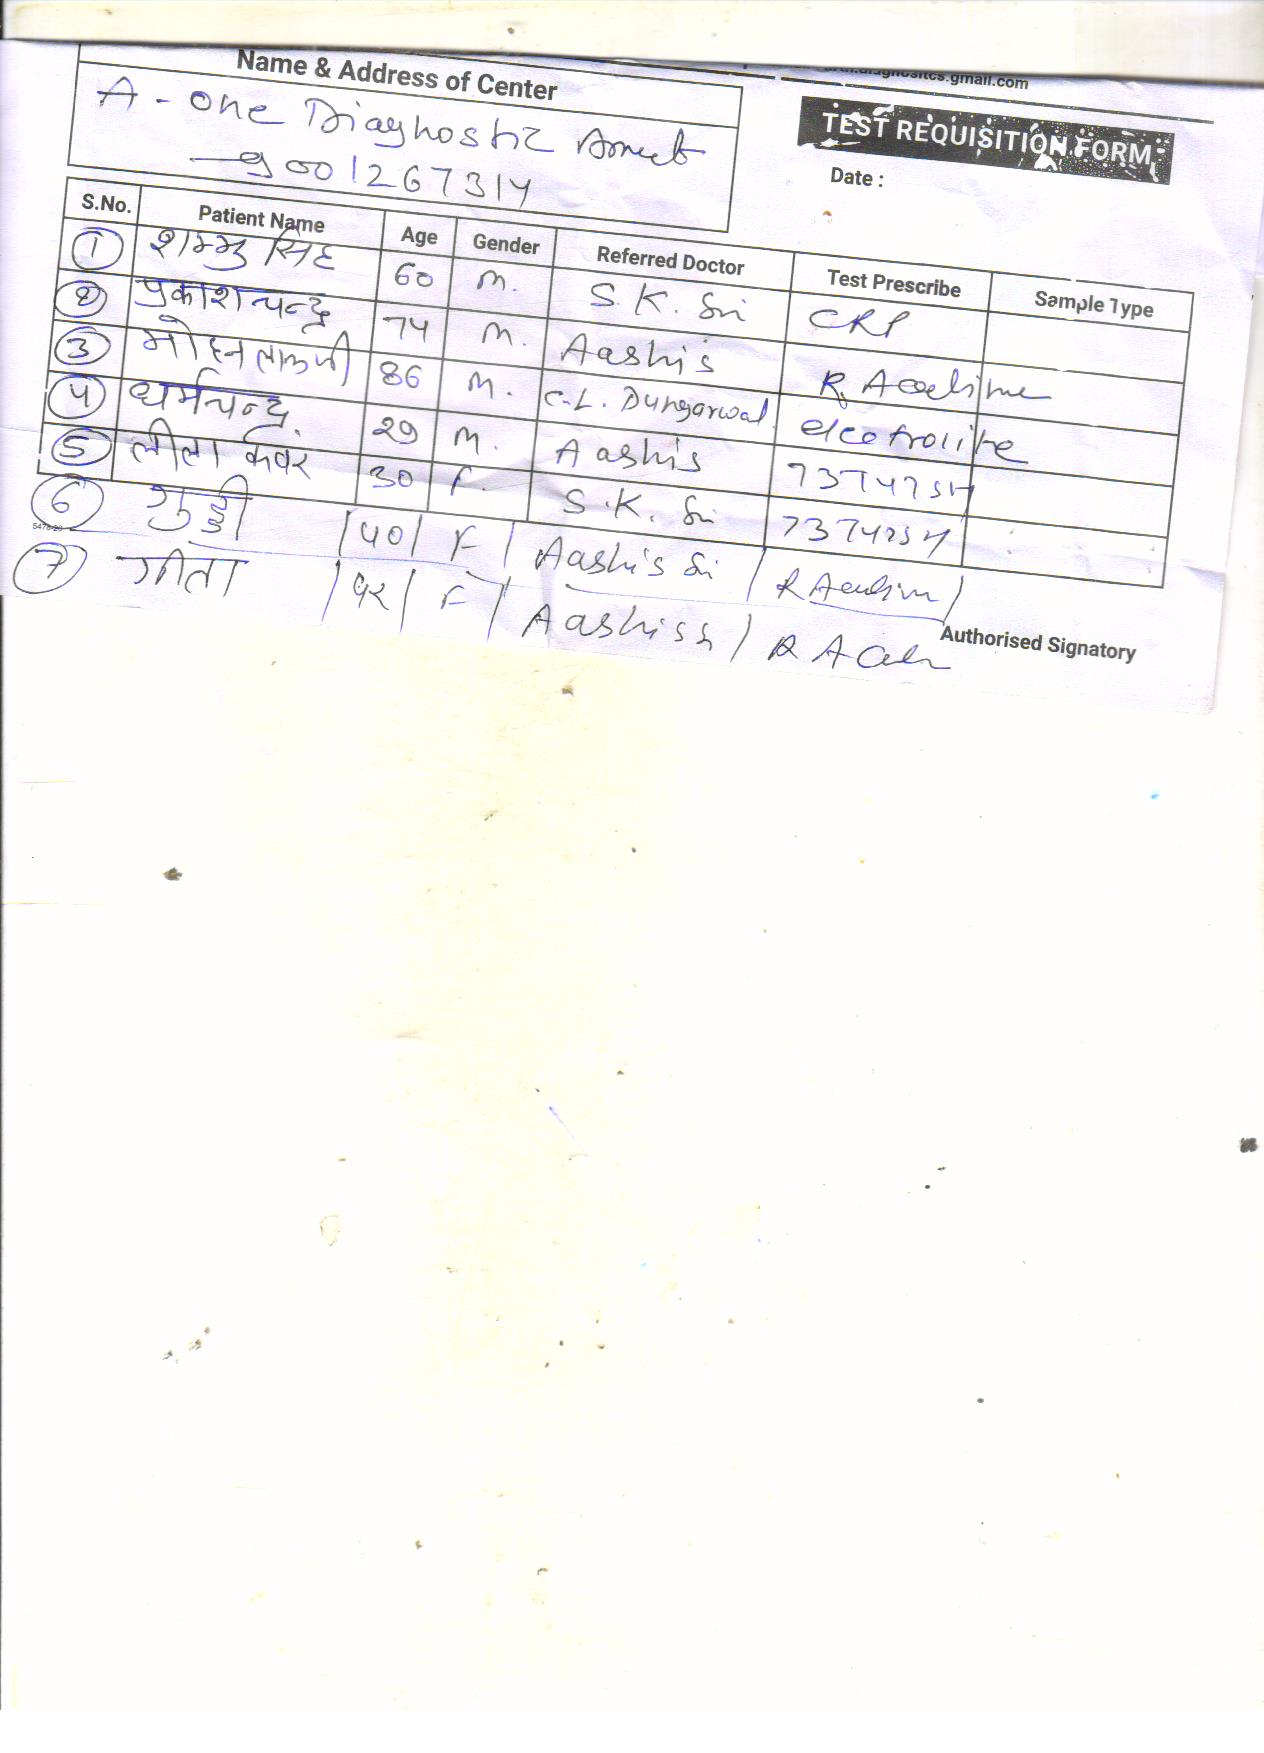 Name & Address of Center
A - one Diagnostic Amet
9001267314
diagnositcs.gmail.com
TEST REQUISITION FORM
Date :
S.No. Patient Name Age Gender Referred Doctor Test Prescribe Sample Type
1 शम्भु सिंह 60 M. S.K. Sri CRP
2 प्रकाश चन्द्र 74 M. Aashis R. A
3 मोहन लालजी 86 M. C.L. Dungarwal electrolite
4 धर्मचन्द्र 29 M. Aashis
5 लीला कंवर 30 F. S.K. Sri
6 गुड्डी 40 F Aashis Sri R A
5478-20
7 गीता F Aashiss R A
Authorised Signatory